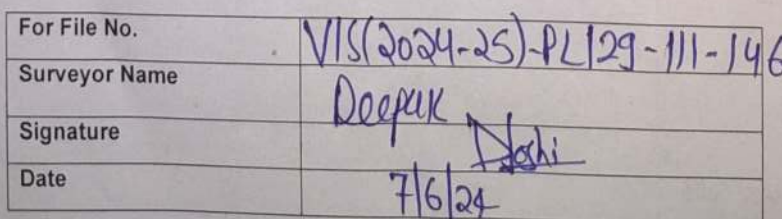 For File No. VIS(2024-25)-PL129-111-146
Surveyor Name Deepak
Signature Joshi
Date 7/6/24